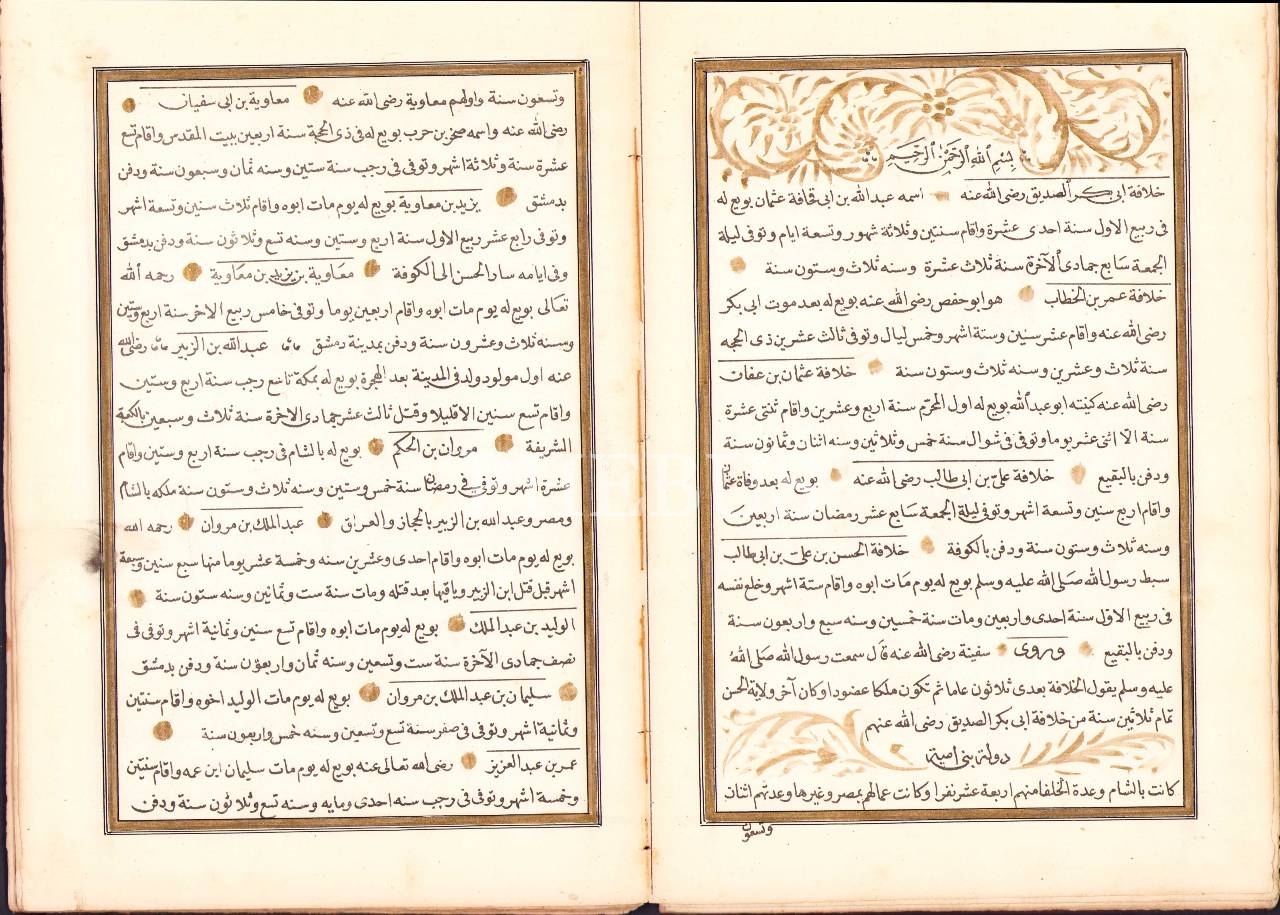 بسم الله الرحمن الرحيم
خلافة ابى بكر الصديق رضى الله عنه اسمه عبد الله بن ابى قحافة عثمان بويع له
فى ربيع الاول سنة احدى عشرة واقام سنتين وثلاثة شهور وتسعة ايام وتوفى ليلة
الجمعة سابع جمادى الآخرة سنة ثلاث عشرة وسنه ثلاث وستون سنة
خلافة عمر بن الخطاب هو ابو حفص رضى الله عنه بويع له بعد موت ابى بكر
رضى الله عنه واقام عشر سنين وستة اشهر وخمس ليال وتوفى ثالث عشرين ذى الحجه
سنة ثلاث وعشرين وسنه ثلاث وستون سنة خلافة عثمان بن عفان
رضى الله عنه كنيته ابو عبد الله بويع له اول المحرم سنة اربع وعشرين واقام ثنتى عشرة
سنة الا اثنى عشر يوما وتوفى فى شوال سنة خمس وثلاثين وسنه اثنان وثمانون سنة
ودفن بالبقيع خلافة على بن ابى طالب رضى الله عنه بويع له بعد وفاة عثمان
واقام اربع سنين وتسعة اشهر وتوفى ليلة الجمعة سابع عشر رمضان سنة اربعين
وسنه ثلاث وستون سنة ودفن بالكوفة خلافة الحسن بن على بن ابى طالب
سبط رسول الله صلى الله عليه وسلم بويع له يوم مات ابوه واقام ستة اشهر وخلع نفسه
فى ربيع الاول سنة احدى واربعين ومات سنة خمسين وسنه سبع واربعون سنة
ودفن بالبقيع وروى سفينة رضى الله عنه قال سمعت رسول الله صلى الله
عليه وسلم يقول الخلافة بعدى ثلاثون عاما ثم تكون ملكا عضودا وكان آخر ولاية الحسن
تمام ثلاثين سنة من خلافة ابى بكر الصديق رضى الله عنهم
دولة بنى امية
كانت بالشام وعدة الخلفا منهم اربعة عشر نفرا وكانت عمالهم بمصر وغيرها وعدتهم اثنان
وتسعون
وتسعون سنة واولهم معاوية رضى الله عنه معاوية بن ابى سفيان
رضى الله عنه واسمه صخر بن حرب بويع له فى ذى الحجة سنة اربعين ببيت المقدس واقام تسع
عشرة سنة وثلاثة اشهر وتوفى فى رجب سنة ستين وسنه ثمان وسبعون سنة ودفن
بدمشق يزيد بن معاوية بويع له يوم مات ابوه واقام ثلاث سنين وتسعة اشهر
وتوفى رابع عشر ربيع الاول سنة اربع وستين وسنه تسع وثلاثون سنة ودفن بدمشق
وفى ايامه سار الحسن الى الكوفة معاوية بن يزيد بن معاوية رحمه الله
تعالى بويع له يوم مات ابوه واقام اربعين يوما وتوفى خامس ربيع الاخر سنة اربع وستين
وسنه ثلاث وعشرون سنة ودفن بمدينة دمشق عبد الله بن الزبير رضى الله
عنه اول مولود ولد فى المدينة بعد الهجرة بويع له بمكة تاسع رجب سنة اربع وستين
واقام تسع سنين الا قليلا وقتل ثالث عشر جمادى الاخرة سنة ثلاث وسبعين بالكعبة
الشريفة مروان بن الحكم بويع له بالشام فى رجب سنة اربع وستين واقام
عشرة اشهر وتوفى فى رمضان سنة خمس وستين وسنه ثلاث وستون سنة ملكه بالشام
ومصر وعبد الله بن الزبير بالحجاز والعراق عبد الملك بن مروان رحمه الله
بويع له يوم مات ابوه واقام احدى وعشرين سنه وخمسة عشر يوما منها سبع سنين وسبعة
اشهر قبل قتل ابن الزبير وباقيها بعد قتله ومات سنة ست وثمانين وسنه ستون سنة
الوليد بن عبد الملك بويع له يوم مات ابوه واقام تسع سنين وثمانية اشهر وتوفى فى
نصف جمادى الآخرة سنة ست وتسعين وسنه ثمان واربعون سنة ودفن بدمشق
سليمان بن عبد الملك بن مروان بويع له يوم مات الوليد اخوه واقام سنتين
وثمانية اشهر وتوفى فى صفر سنة تسع وتسعين وسنه خمس واربعون سنة
عمر بن عبد العزيز رضى الله تعالى عنه بويع له يوم مات سليمان ابن عمه واقام سنتين
وخمسة اشهر وتوفى فى رجب سنه احدى ومايه وسنه تسع وثلاثون سنة ودفن